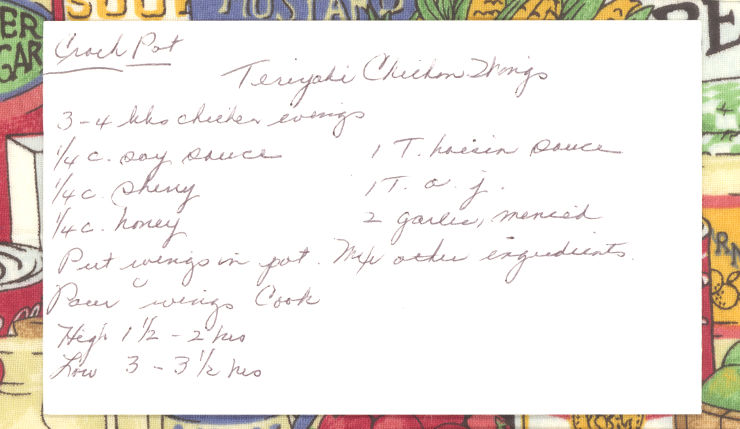 Crock Pot
Teriyaki Chicken Wings
3-4 lbs chicken wings
1/4 c. soy sauce
1 T. hoisin sauce
1/4 c. sherry
1 T. o. j.
1/4 c. honey
2 garlic, minced
Put wings in pot. Mix other ingredients.
Pour wings Cook
High 1 1/2 - 2 hrs
Low 3 - 3 1/2 hrs